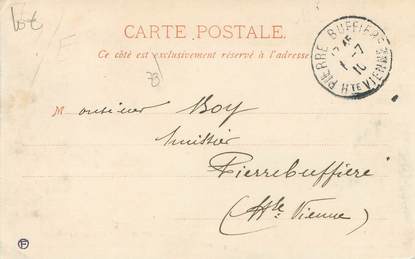 10€
F
CARTE POSTALE.
Ce côté est exclusivement réservé à l'adresse
PIERRE-BUFFIERE
1-7
10
HTE VIENNE
Monsieur Roy
huissier
Pierrebuffiere
(Hte Vienne)
F